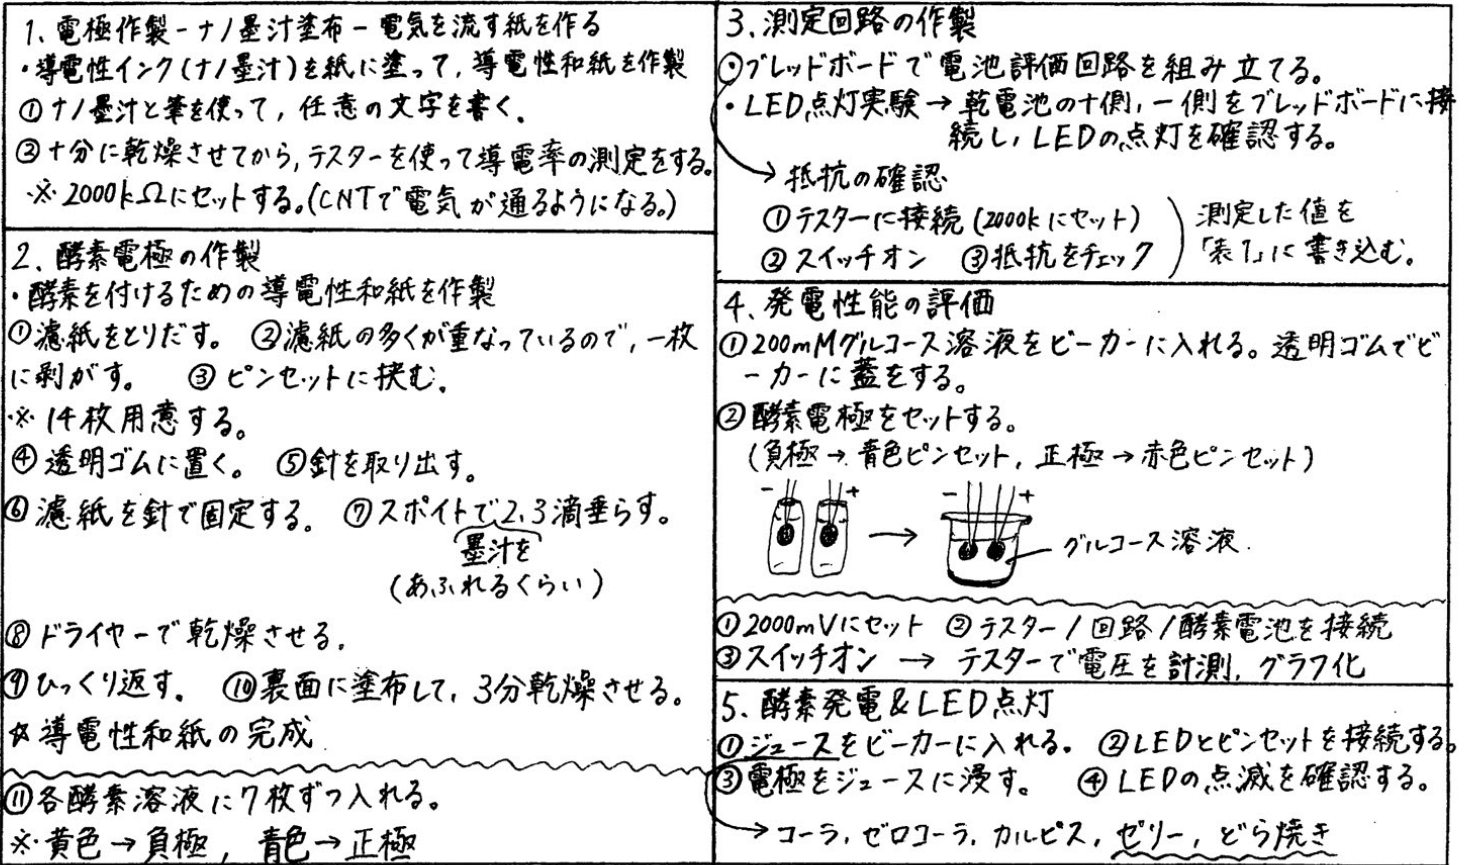 1. 電極作製-ナノ墨汁塗布-電気を流す紙を作る
・導電性インク(ナノ墨汁)を紙に塗って,導電性和紙を作製
①ナノ墨汁と筆を使って,任意の文字を書く。
②十分に乾燥させてから,テスターを使って導電率の測定をする。
※2000kΩにセットする。(CNTで電気が通るようになる。)
2. 酵素電極の作製
・酵素を付けるための導電性和紙を作製
①濾紙をとりだす。 ②濾紙の多くが重なっているので,一枚
に剥がす。 ③ピンセットに挟む。
※14枚用意する。
④透明ゴムに置く。 ⑤針を取り出す。
⑥濾紙を針で固定する。 ⑦スポイトで2,3滴垂らす。
墨汁を
(あふれるくらい)
⑧ドライヤーで乾燥させる。
⑨ひっくり返す。 ⑩裏面に塗布して,3分乾燥させる。
☆導電性和紙の完成
⑪各酵素溶液に7枚ずつ入れる。
※黄色→負極, 青色→正極
3. 測定回路の作製
①ブレッドボードで電池評価回路を組み立てる。
・LED点灯実験→乾電池の+側,-側をブレッドボードに接
続し,LEDの点灯を確認する。
→抵抗の確認
①テスターに接続(2000kにセット)
②スイッチオン ③抵抗をチェック
測定した値を
「表1」に書き込む。
4. 発電性能の評価
①200mMグルコース溶液をビーカーに入れる。透明ゴムでビ
ーカーに蓋をする。
②酵素電極をセットする。
(負極→青色ピンセット,正極→赤色ピンセット)
- + → - +
グルコース溶液.
①2000mVにセット ②テスター/回路/酵素電池を接続
③スイッチオン → テスターで電圧を計測,グラフ化
5. 酵素発電&LED点灯
①ジュースをビーカーに入れる。 ②LEDとピンセットを接続する。
③電極をジュースに浸す。 ④LEDの点滅を確認する。
→コーラ,ゼロコーラ,カルピス,ゼリー,どら焼き